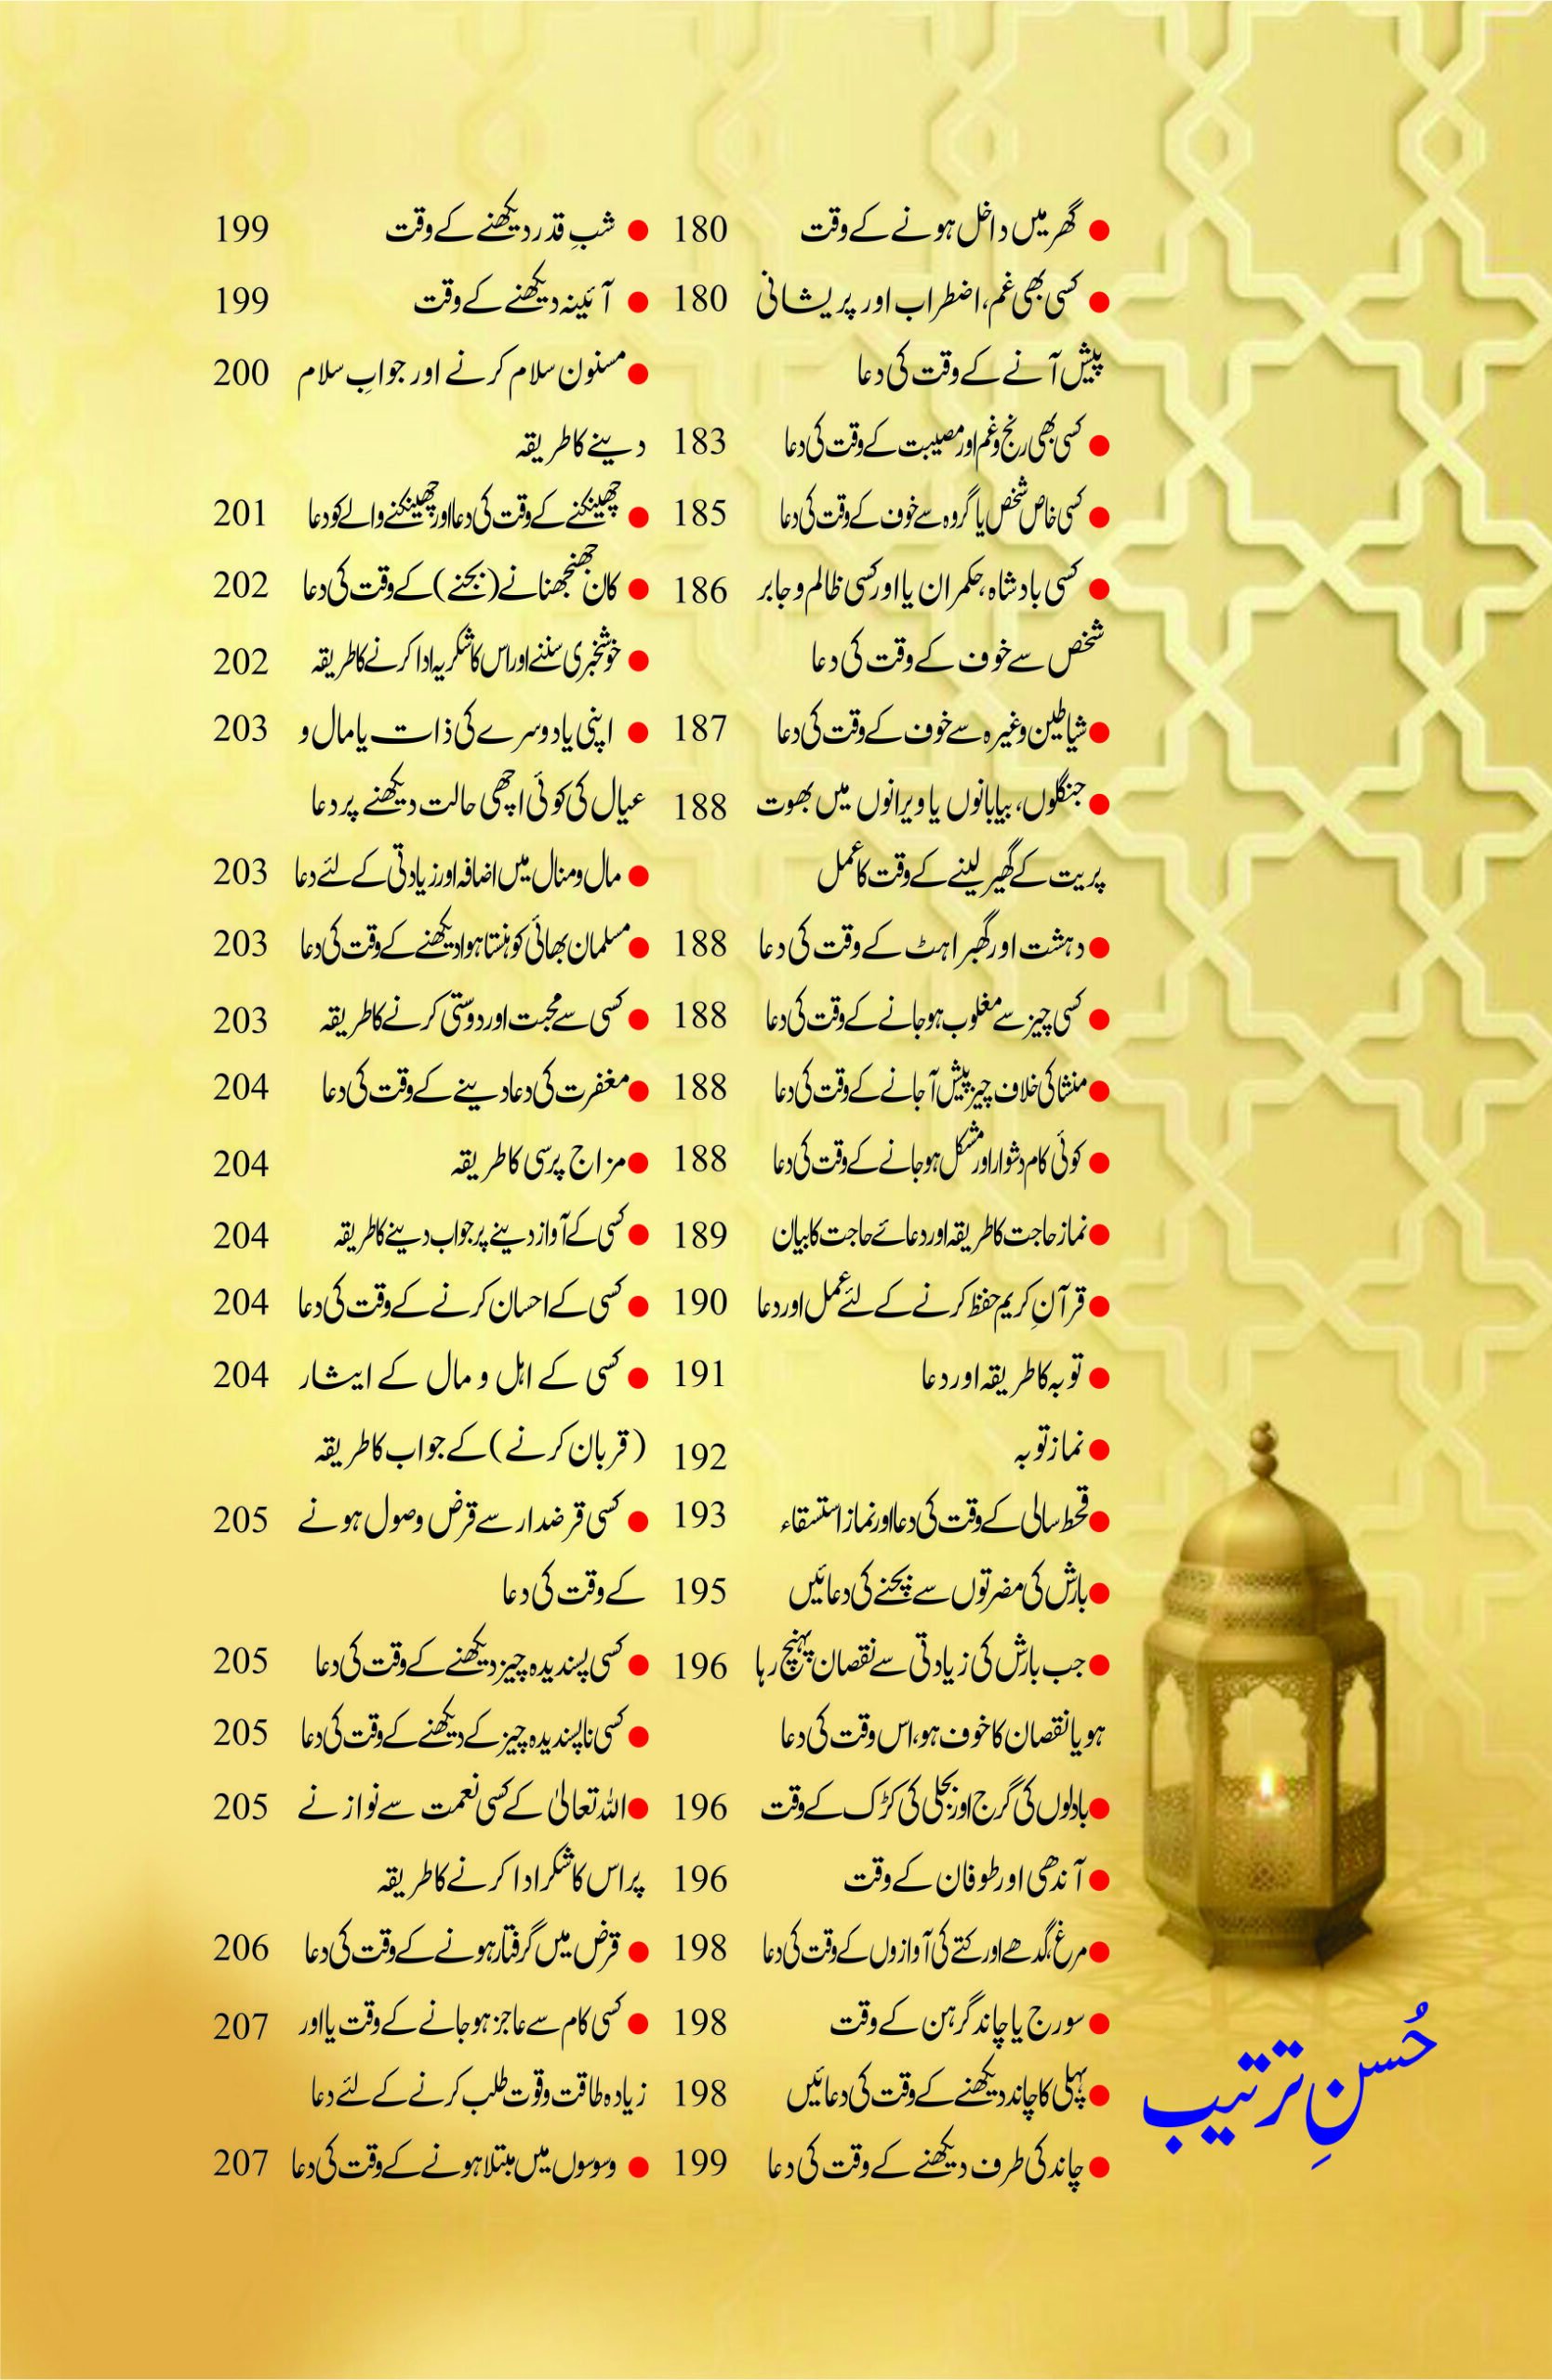 گھر میں داخل ہونے کے وقت 180
کسی بھی غم، اضطراب اور پریشانی 180
پیش آنے کے وقت کی دعا
کسی بھی رنج و غم اور مصیبت کے وقت کی دعا 183
کسی خاص شخص یا گروہ سے خوف کے وقت کی دعا 185
کسی بادشاہ، حکمران یا اور کسی ظالم و جابر 186
شخص سے خوف کے وقت کی دعا
شیاطین وغیرہ سے خوف کے وقت کی دعا 187
جنگلوں، بیابانوں یا ویرانوں میں بھوت 188
پریت کے گھیر لینے کے وقت کا عمل
دہشت اور گھبراہٹ کے وقت کی دعا 188
کسی چیز سے مغلوب ہو جانے کے وقت کی دعا 188
منشا کی خلاف چیز پیش آجانے کے وقت کی دعا 188
کوئی کام دشوار اور مشکل ہو جانے کے وقت کی دعا 188
نماز حاجت کا طریقہ اور دعائے حاجت کا بیان 189
قرآنِ کریم حفظ کرنے کے لئے عمل اور دعا 190
توبہ کا طریقہ اور دعا 191
نماز توبہ 192
قحط سالی کے وقت کی دعا اور نماز استسقاء 193
بارش کی مضرتوں سے بچنے کی دعائیں 195
جب بارش کی زیادتی سے نقصان پہنچ رہا 196
ہو یا نقصان کا خوف ہو، اس وقت کی دعا
بادلوں کی گرج اور بجلی کی کڑک کے وقت 196
آندھی اور طوفان کے وقت 196
مرغ، گدھے اور کتے کی آوازوں کے وقت کی دعا 198
سورج یا چاند گرہن کے وقت 198
پہلی کا چاند دیکھنے کے وقت کی دعائیں 198
چاند کی طرف دیکھنے کے وقت کی دعا 199
شبِ قدر دیکھنے کے وقت 199
آئینہ دیکھنے کے وقت 199
مسنون سلام کرنے اور جوابِ سلام 200
دینے کا طریقہ
چھینکنے کے وقت کی دعا اور چھینکنے والے کو دعا 201
کان جھنجھنانے (بجنے) کے وقت کی دعا 202
خوشخبری سننے اور اس کا شکریہ ادا کرنے کا طریقہ 202
اپنی یا دوسرے کی ذات یا مال و 203
عیال کی کوئی اچھی حالت دیکھنے پر دعا
مال و منال میں اضافہ اور زیادتی کے لئے دعا 203
مسلمان بھائی کو ہنستا ہوا دیکھنے کے وقت کی دعا 203
کسی سے محبت اور دوستی کرنے کا طریقہ 203
مغفرت کی دعا دینے کے وقت کی دعا 204
مزاج پرسی کا طریقہ 204
کسی کے آواز دینے پر جواب دینے کا طریقہ 204
کسی کے احسان کرنے کے وقت کی دعا 204
کسی کے اہل و مال کے ایثار 204
(قربان کرنے) کے جواب کا طریقہ
کسی قرضدار سے قرض وصول ہونے 205
کے وقت کی دعا
کسی پسندیدہ چیز دیکھنے کے وقت کی دعا 205
کسی ناپسندیدہ چیز کے دیکھنے کے وقت کی دعا 205
اللہ تعالیٰ کے کسی نعمت سے نوازنے 205
پر اس کا شکر ادا کرنے کا طریقہ
قرض میں گرفتار ہونے کے وقت کی دعا 206
کسی کام سے عاجز ہو جانے کے وقت یا اور 207
زیادہ طاقت و قوت طلب کرنے کے لئے دعا
وسوسوں میں مبتلا ہونے کے وقت کی دعا 207
حُسنِ ترتیب